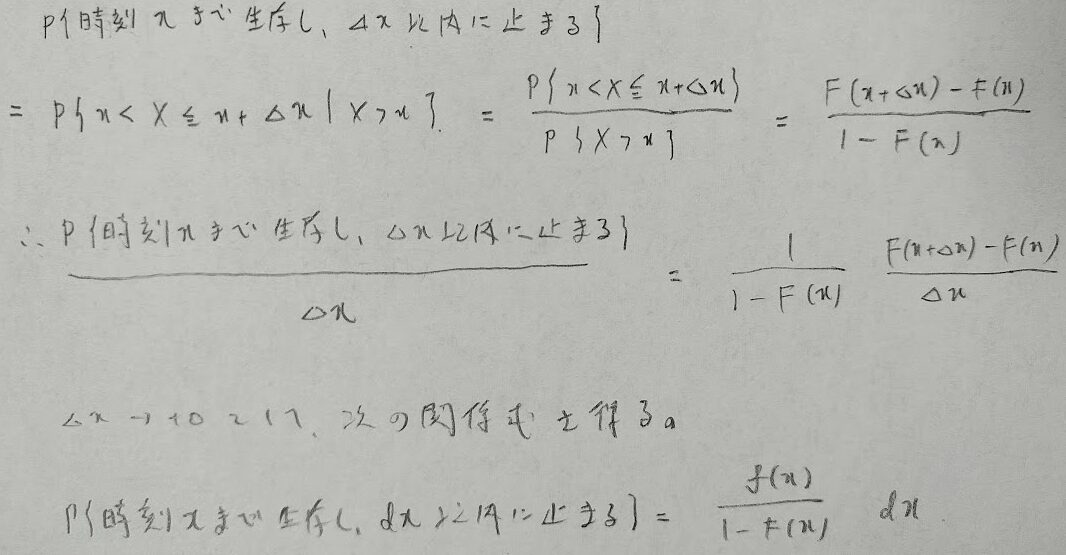 P{時刻xまで生存し、Δx以内に止まる}
= P{x < X ≦ x + Δx | X > x} = P{x < X ≦ x+Δx} / P{X > x} = F(x+Δx) - F(x) / 1 - F(x)
∴ P{時刻xまで生存し、Δx以内に止まる} / Δx = 1 / 1 - F(x) F(x+Δx) - F(x) / Δx
Δx → +0として、次の関係式を得る。
P{時刻xまで生存し、dx以内に止まる} = f(x) / 1 - F(x) dx